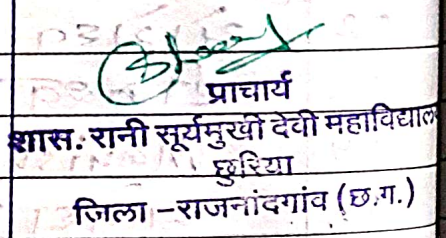 प्राचार्य
शास. रानी सूर्यमुखी देवी महाविद्याल
छुरिया
जिला -राजनांदगांव (छ.ग.)